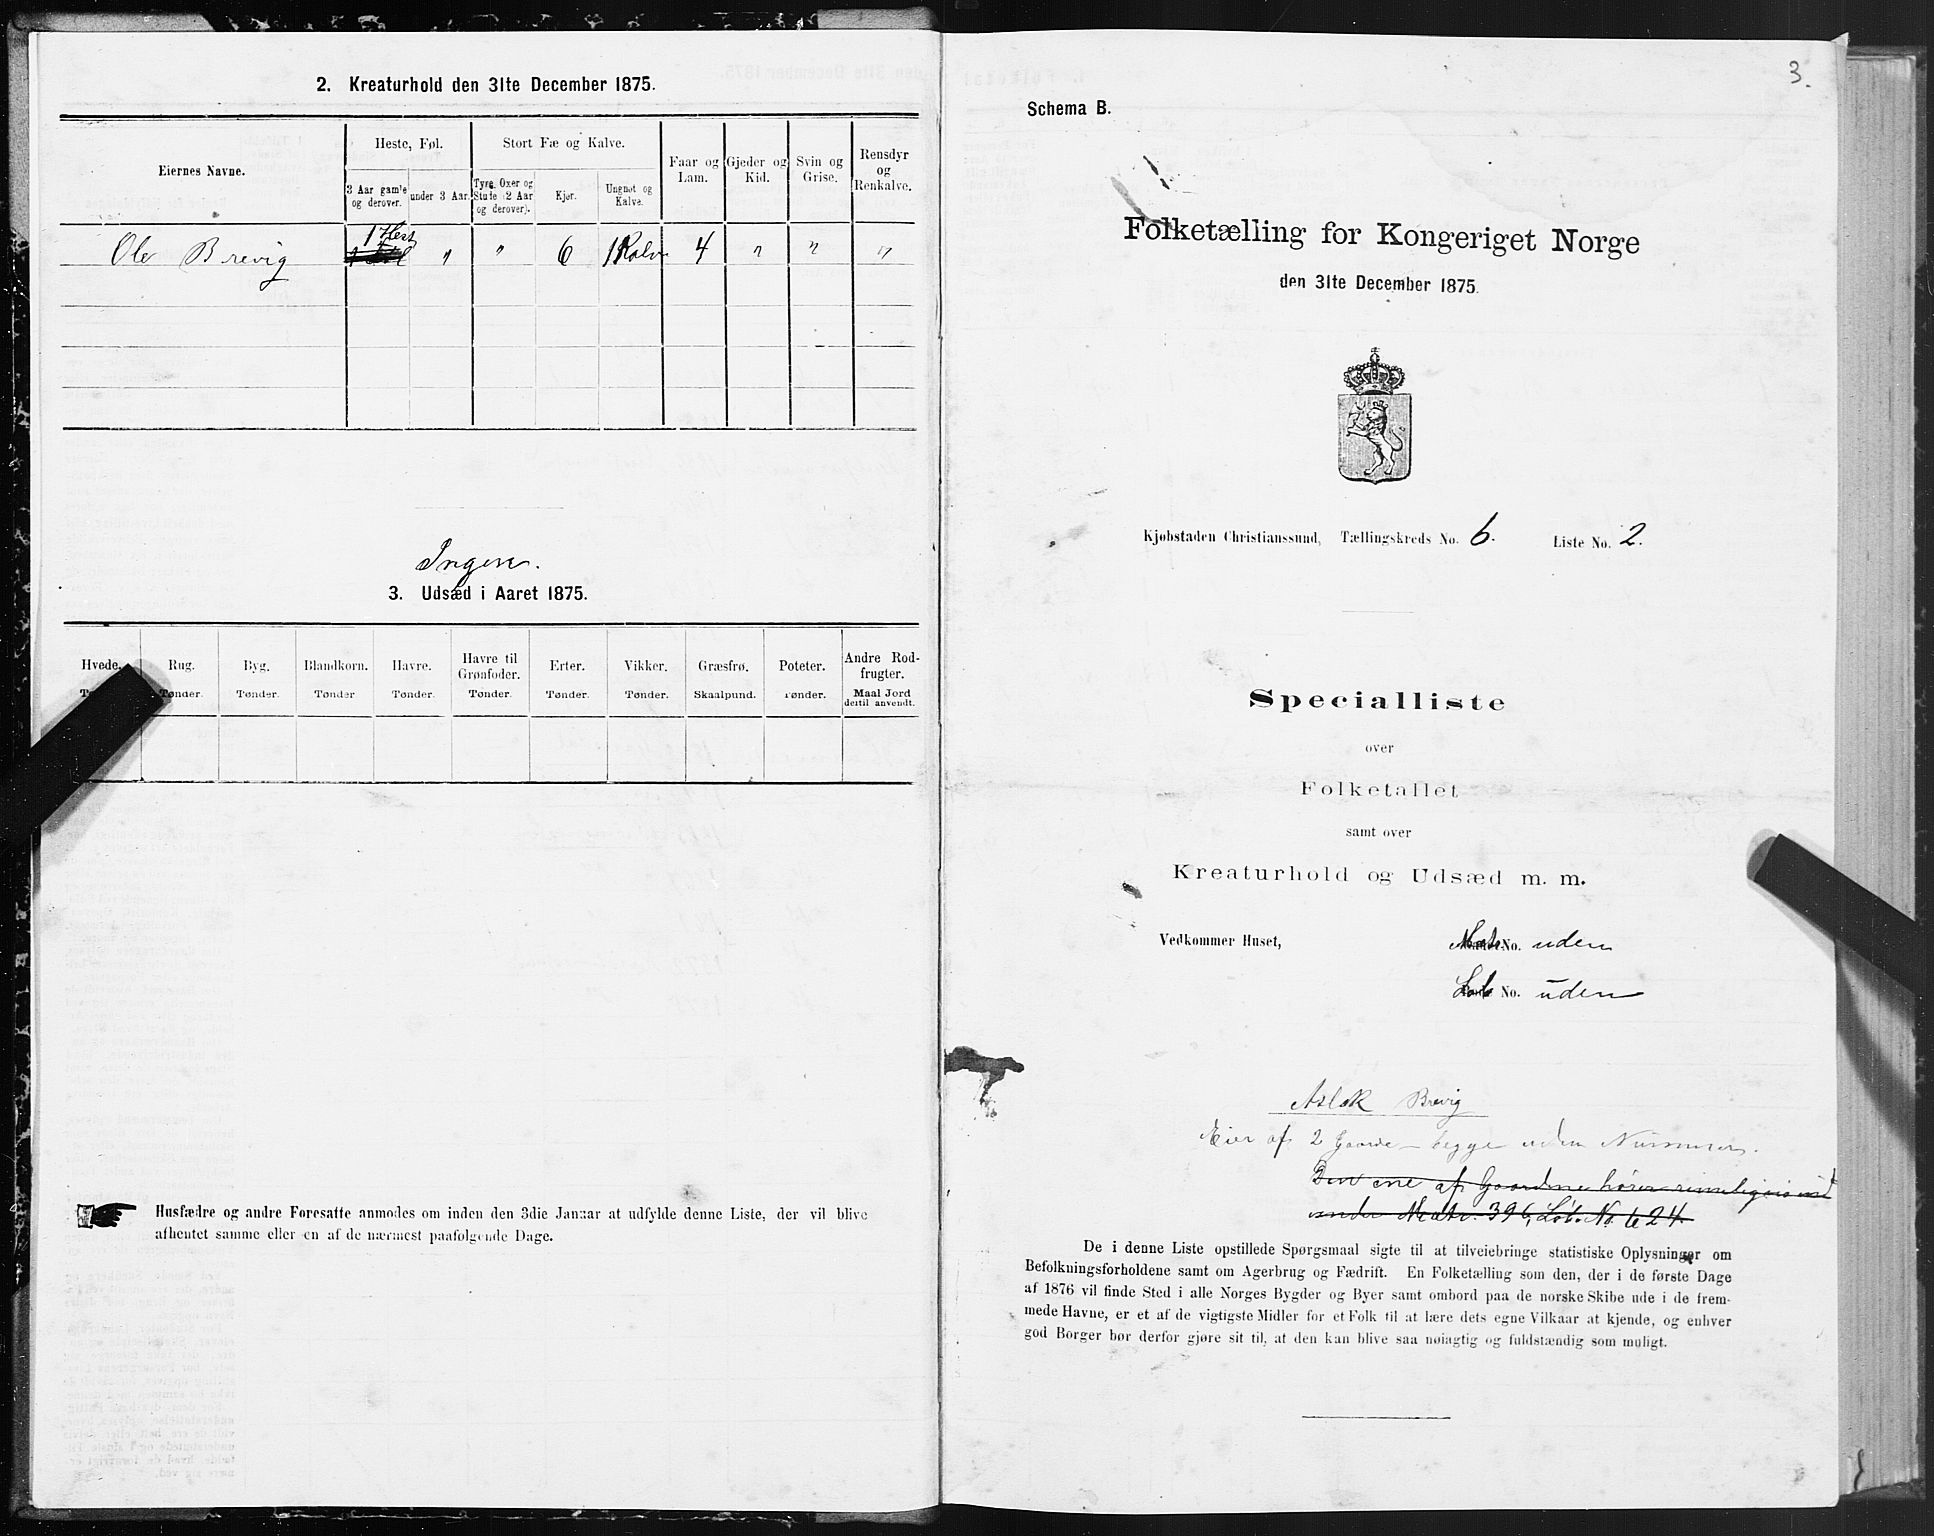 2. Kreaturhold den 31te December 1875.
Eiernes Navne.
Heste, Føl.
Stort Fæ og Kalve.
Faar og Lam.
Gjeder og Kid.
Svin og Grise.
Rensdyr og Renkalve.
3 Aar gamle og derover.
under 3 Aar.
Tyre, Oxer og Stude (2 Aar og derover).
Kjør.
Ungnøt og Kalve.
1 Hest
Ole Brevig 1 Føl " " 6 1 Kalv 4 " " "
Ingen.
3. Udsæd i Aaret 1875.
Hvede. Rug. Byg. Blandkorn. Havre. Havre til Grønfoder. Erter. Vikker. Græsfrø. Poteter. Andre Rodfrugter.
Tønder. Tønder. Tønder Tønder. Tønder. Tønder. Tønder. Skaalpund. Tønder. Maal Jord dertil anvendt.
Husfædre og andre Foresatte anmodes om inden den 3die Januar at udfylde denne Liste, der vil blive
afhentet samme eller en af de nærmest paafølgende Dage.
3.
Schema B.
1.
Folketælling for Kongeriget Norge
den 31te December 1875.
Kjøbstaden Christianssund, Tællingskreds No. 6. Liste No. 2.
Specialliste
over
Folketallet
samt over
Kreaturhold og Udsæd m. m.
Vedkommer Huset, Matr. No. uden
Løb No. uden
Aslak Brevig
Eier af 2 Gaarde – begge uden Nummer.
Den ene af Gaardene hører rimeligvis ind
under Matr. 396, Løb. No. 624
De i denne Liste opstillede Spørgsmaal sigte til at tilveiebringe statistiske Oplysninger om
Befolkningsforholdene samt om Agerbrug og Fædrift. En Folketælling som den, der i de første Dage
af 1876 vil finde Sted i alle Norges Bygder og Byer samt ombord paa de norske Skibe ude i de frem-
mede Havne, er et af de vigtigste Midler for et Folk til at lære dets egne Vilkaar at kjende, og enhver
god Borger bør derfor gjøre sit til, at den kan blive saa nøiagtig og fuldstændig som muligt.